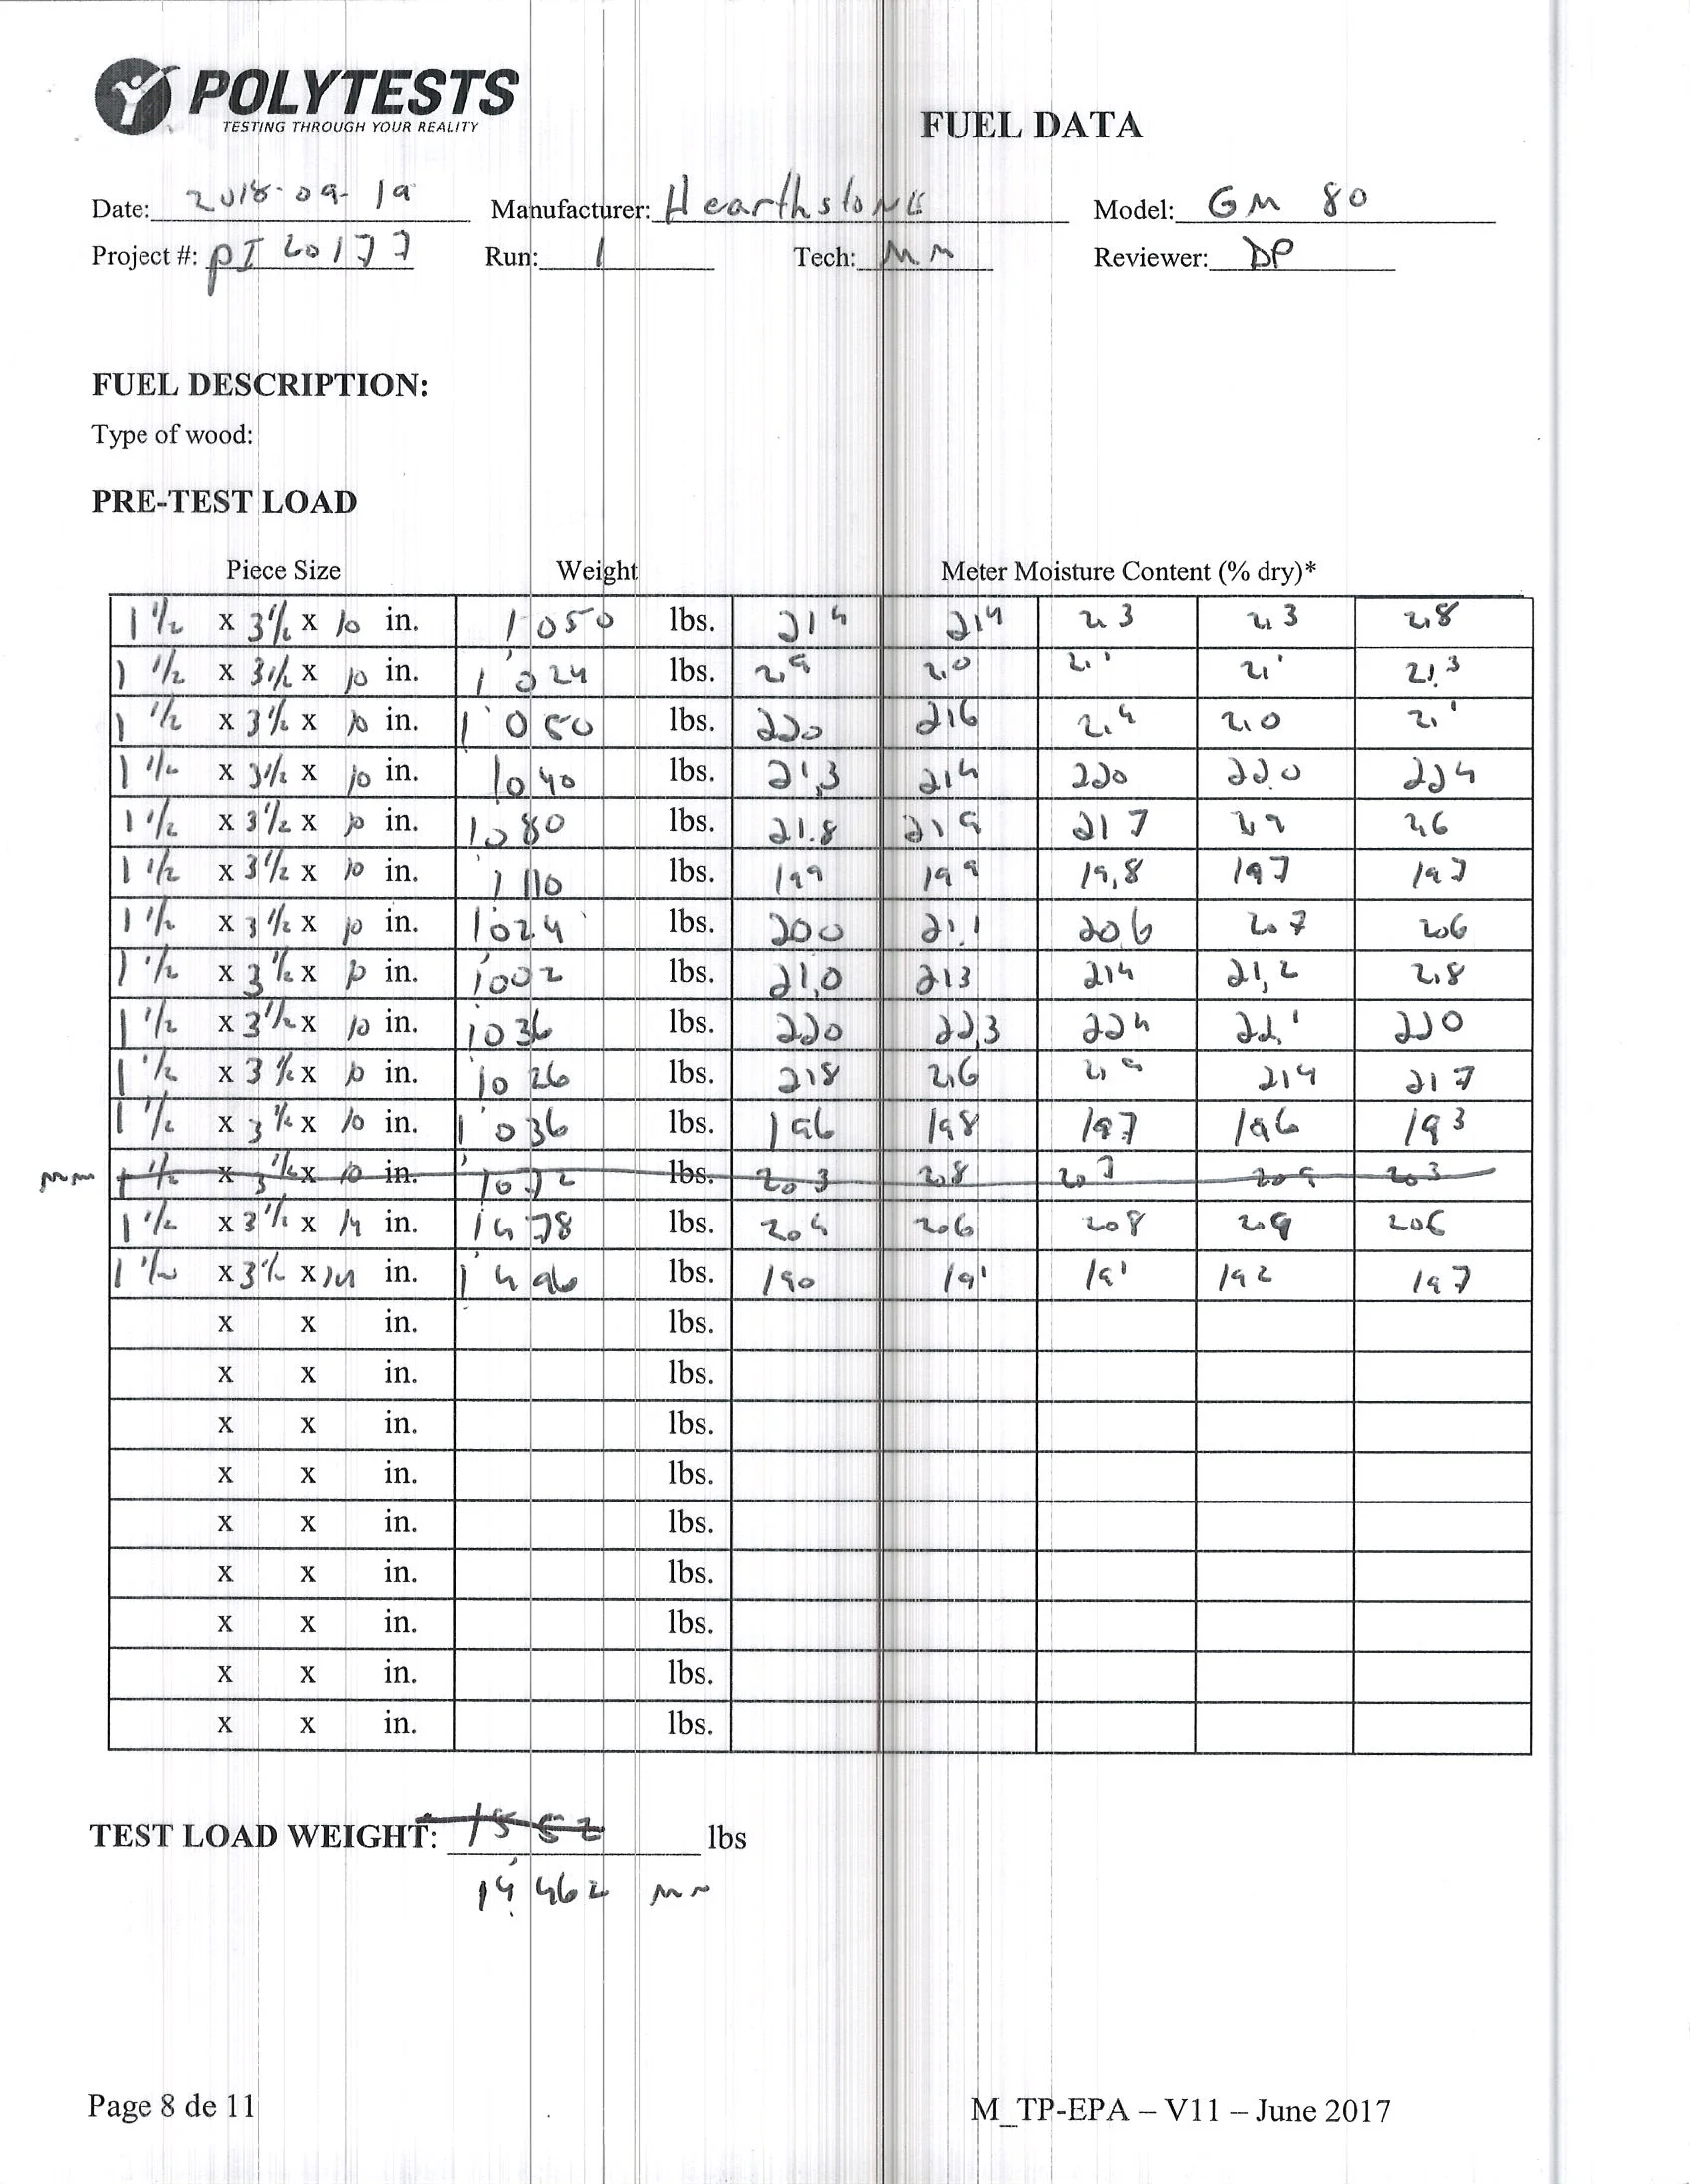 POLYTESTS
TESTING THROUGH YOUR REALITY
FUEL DATA
Date: 2018-09-19 Manufacturer: Hearthstone Model: GM 80
Project #: PI 20177 Run: 1 Tech: MM Reviewer: DP
FUEL DESCRIPTION:
Type of wood:
PRE-TEST LOAD
Piece Size Weight Meter Moisture Content (% dry)*
1 1/2 x 3 1/2 x 10 in. 1.050 lbs. 214 214 213 213 218
1 1/2 x 3 1/2 x 10 in. 1.024 lbs. 21.3
1 1/2 x 3 1/2 x 10 in. 1.050 lbs. 220 216 214 210 211
1 1/2 x 3 1/2 x 10 in. 1040 lbs. 21,3 214 220 22.0 224
1 1/2 x 3 1/2 x 10 in. 1080 lbs. 21.8 219 217 216
1 1/2 x 3 1/2 x 10 in. 1110 lbs. 199 199 19,8 197 197
1 1/2 x 3 1/2 x 10 in. 1024 lbs. 200 21.1 206 207 206
1 1/2 x 3 1/2 x 10 in. 1002 lbs. 21,0 213 214 21,2 218
1 1/2 x 3 1/2 x 10 in. 1036 lbs. 220 22,3 224 221 220
1 1/2 x 3 1/2 x 10 in. 1026 lbs. 218 216 219 214 217
1 1/2 x 3 1/2 x 10 in. 1036 lbs. 196 198 197 196 193
MM 1 1/2 x 3 1/2 x 10 in. lbs. 203 208 207 209 203
1 1/2 x 3 1/2 x 14 in. 1478 lbs. 204 206 208 209 206
1 1/2 x 3 1/2 x 14 in. 1496 lbs. 190 191 191 192 197
x x in. lbs.
x x in. lbs.
x x in. lbs.
x x in. lbs.
x x in. lbs.
x x in. lbs.
x x in. lbs.
x x in. lbs.
x x in. lbs.
TEST LOAD WEIGHT: lbs
14.462 MM
Page 8 de 11 M_TP-EPA – V11 – June 2017